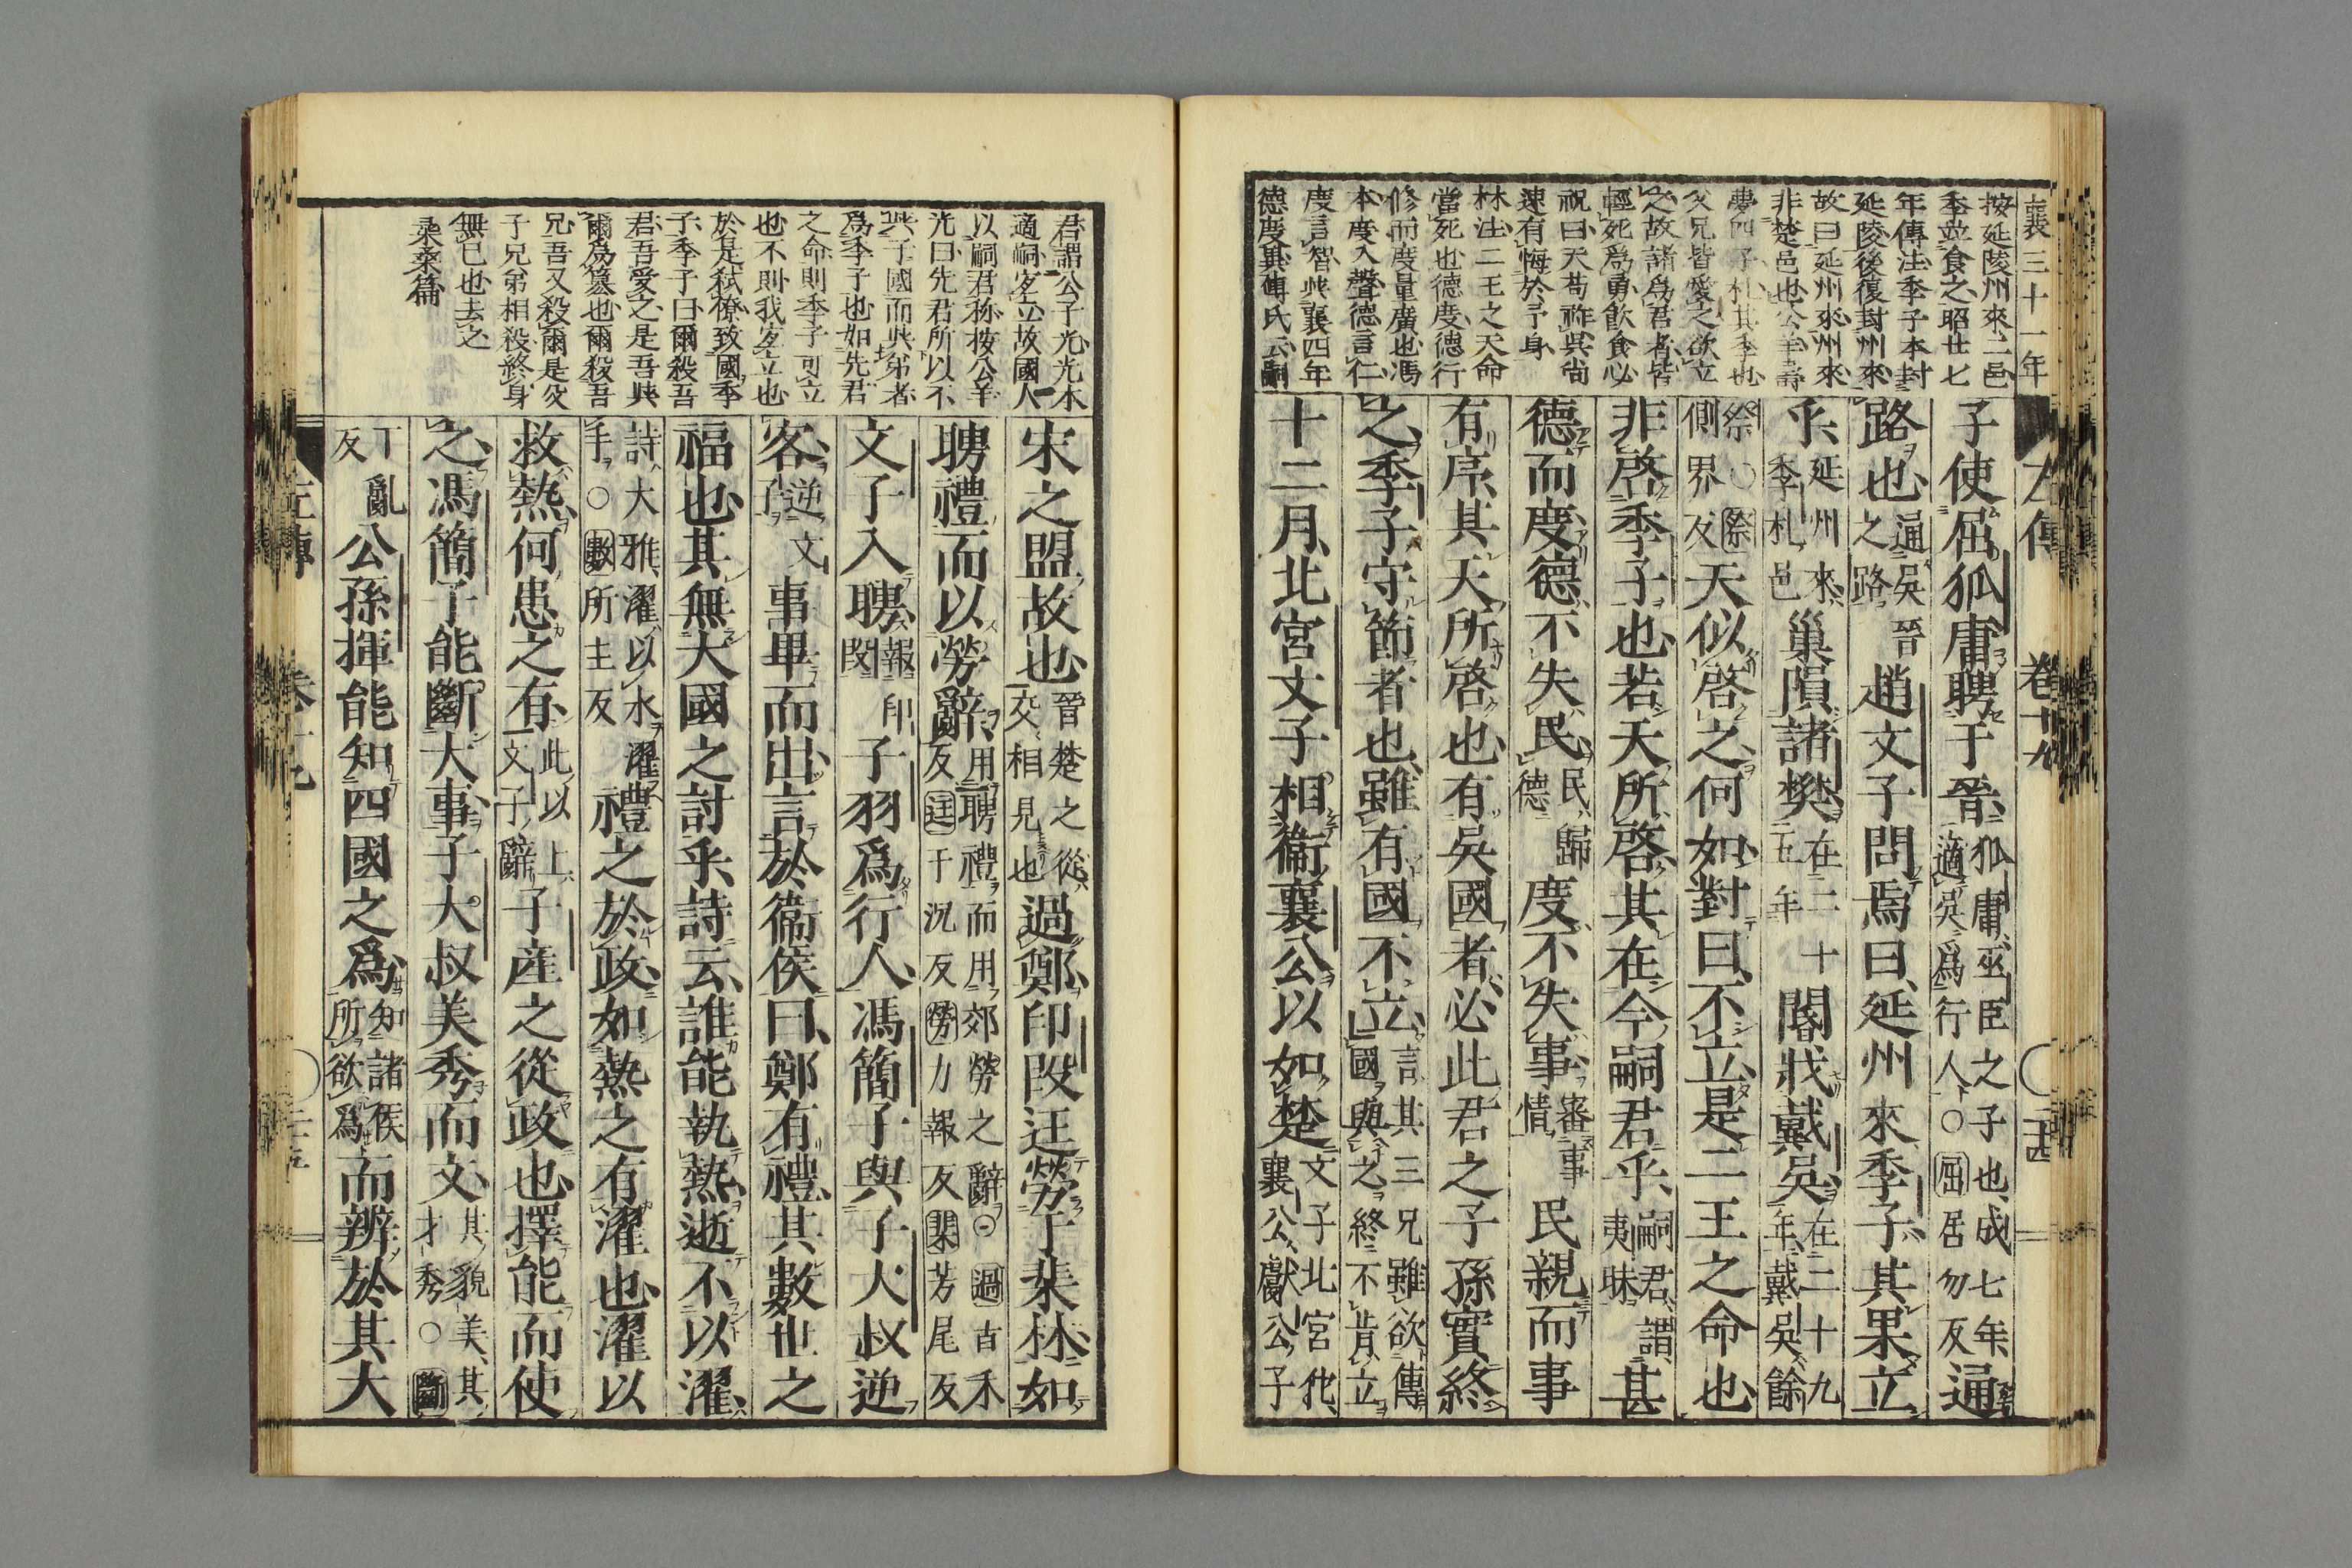 襄三十一年
按延陵州來二邑
季並食之昭廿七
年傳注季子本封
延陵後復封州來
故曰延州來州來
非楚邑也公羊壽
夢四子札其季也
父兄皆愛之欲立
之故諸爲君者皆
輕死爲勇飲食必
祝曰天苟祚吳尚
速有悔於予身
林注二王之天命
當死也德度德行
修而度量廣也馮
本度入聲德言仁
度言智與襄四年
德度異傅氏云嗣
左傳 卷十九 二十四
子使屈狐庸聘于晉狐庸巫臣之子也成七年適吳爲行人○屈居勿反通
路也通吳晉之路趙文子問焉曰延州來季子其果立
乎延州來季札邑巢隕諸樊在二十五年閽戕戴吳在二十九年戴吳餘
祭○祭側界反天似啓之何如對曰不立是二王之命也
非啓季子也若天所啓其在今嗣君乎嗣君謂夷昧甚
德而度德不失民民歸德度不失事審事情民親而事
有序其天所啓也有吳國者必此君之子孫實終
之季子守節者也雖有國不立言其三兄雖欲傳國與之終不肯立
十二月北宮文子相衞襄公以如楚文子北宮佗襄公獻公子
君謂公子光光本
適嗣宜立故國人
以嗣君称按公羊
光曰先君所以不
與子國而與弟者
爲季子也如先君
之命則季子可立
也不則我宜立也
於是弒僚致國季
子季子曰爾殺吾
君吾愛之是吾與
爾爲篡也爾殺吾
兄吾又殺爾是父
子兄弟相殺終身
無已也去之
桑柔篇
宋之盟故也晉楚之從交相見也過鄭印段迋勞于棐林如
聘禮而以勞辭用聘禮而用郊勞之辭○過古禾反迋于況反勞力報反棐芳尾反
文子入聘報印段子羽爲行人馮簡子與子大叔逆
客逆文子事畢而出言於衞侯曰鄭有禮其數世之
福也其無大國之討乎詩云誰能執熱逝不以濯
詩大雅濯以水濯手○數所主反禮之於政如熱之有濯也濯以
救熱何患之有此以上文子辭子產之從政也擇能而使
之馮簡子能斷大事子大叔美秀而文其貌美其才秀○斷
丁亂反公孫揮能知四國之爲知諸侯所欲爲而辨於其大
左傳 卷十九 二十五